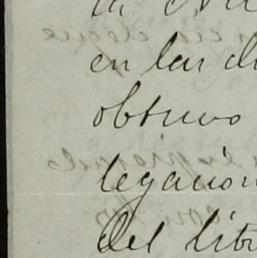 la
en las di
obtuvo
legación
del libr